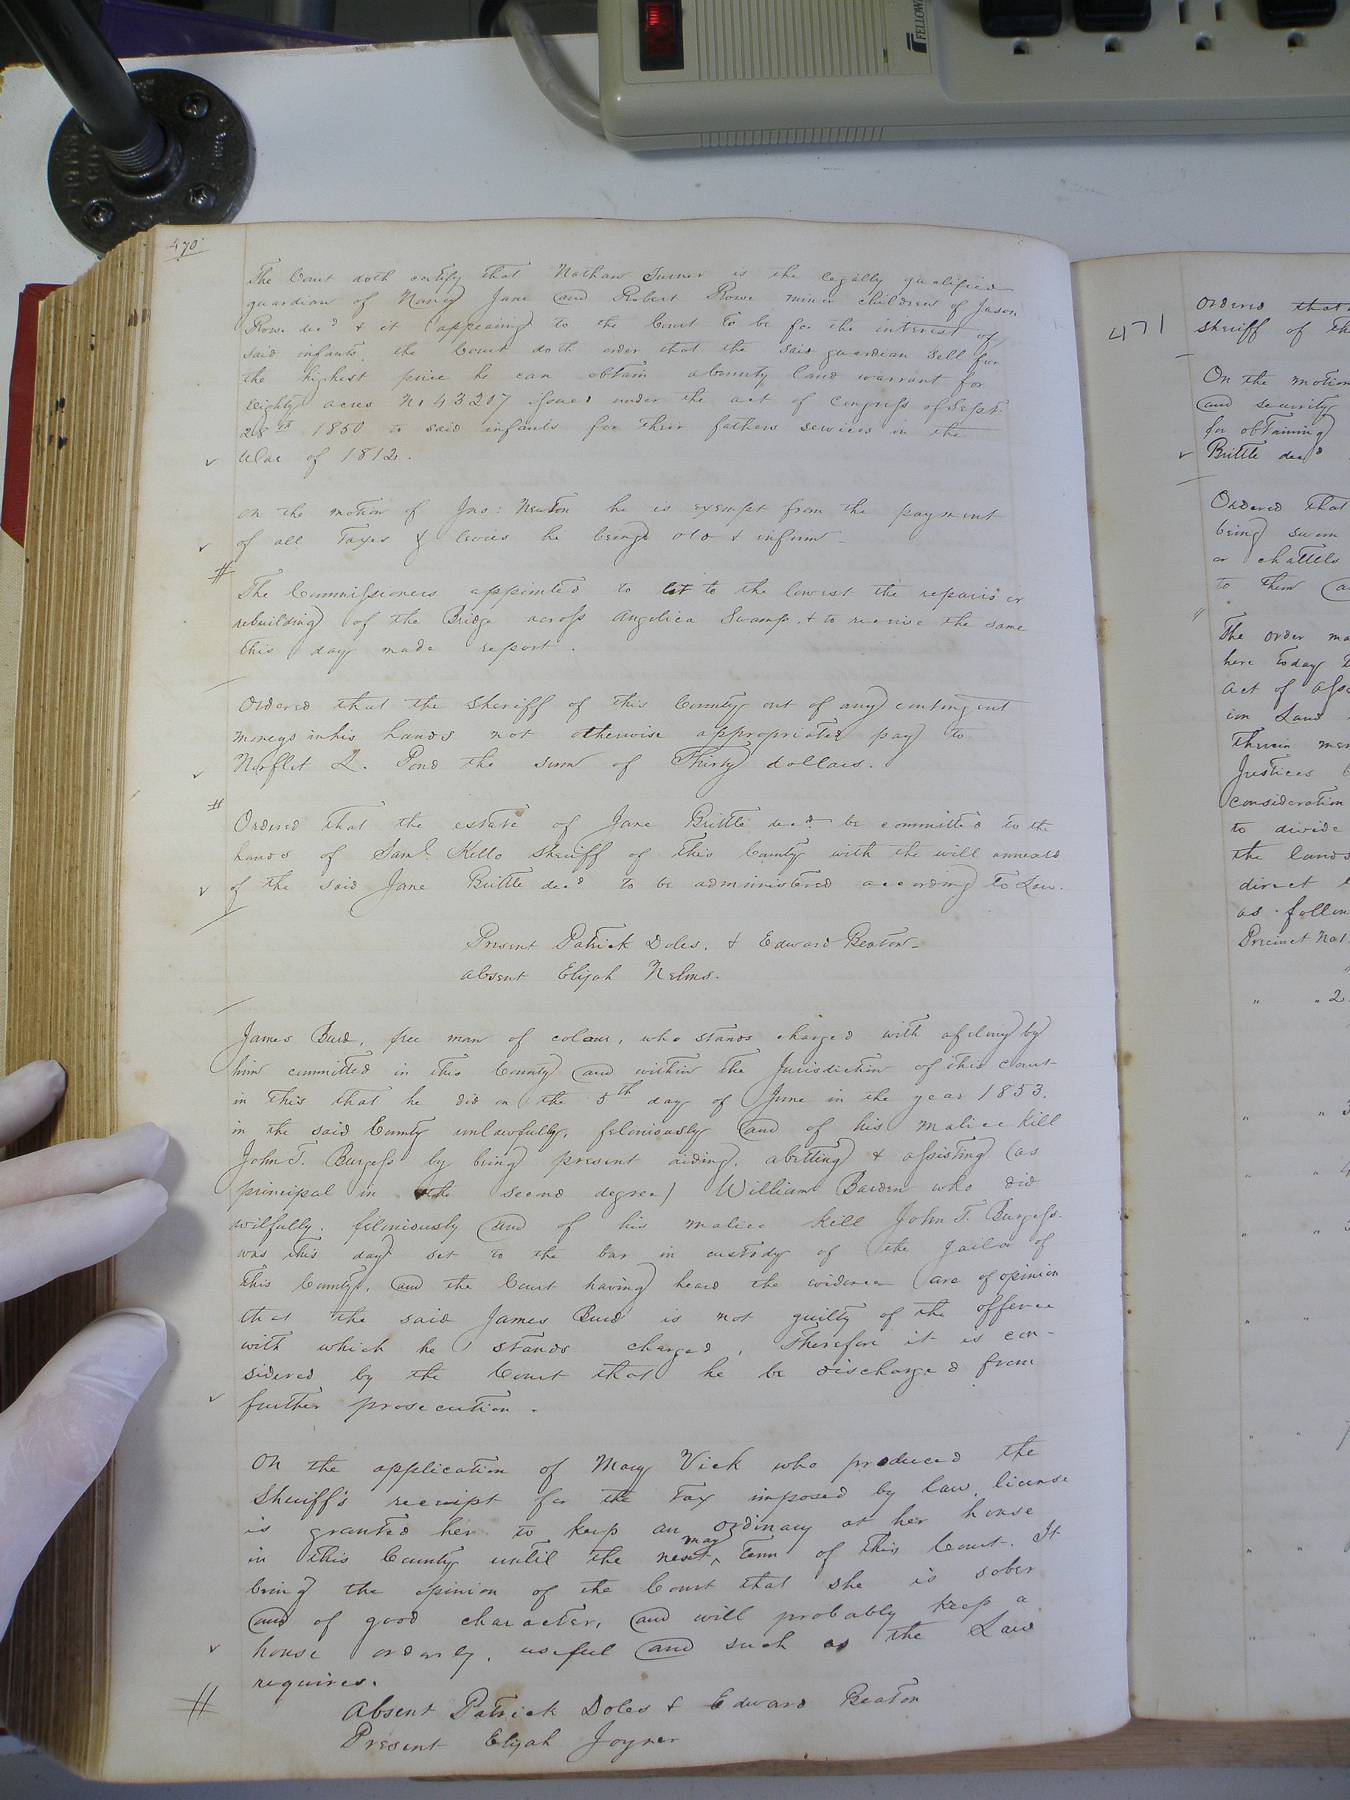 470
The Court doth certify that Nathan Turner is the legally qualified
guardian of Nancy Jane and Robert Rowe minor children of Jason
Rowe decd & it appearing to the Court to be for the interest of
said infants, the Court doth order that the said guardian sell for
the highest price he can obtain a bounty land warrant for
Eighty acres No 43207 issued under the act of Congress of Sept.
28th 1850 to said infants for their fathers services in the
War of 1812.
On the motion of Jno: Newton he is exempt from the payment
of all Taxes & levies he being old & infirm
The Commissioners appointed to let to the lowest the repairs or
rebuilding of the Bridge across Angelica Swamp, & to receive the same
this day made report.
Ordered that the Sheriff of this County out of any contingent
moneys in his hands not otherwise appropriated pay to
Norflet L. Pond the sum of Thirty dollars.
Ordered that the estate of Jane Brittle decd. be committed to the
hands of Saml. Kello Sheriff of this County with the will annexed
of the said Jane Brittle decd to be administered according to Law.
Present Patrick Doles, & Edward Beaton
absent Elijah Nelms.
James Burd, free man of colour, who stands charged with a felony by
him committed in this County and within the Jurisdiction of this Court
in this that he did on the 5th day of June in the year 1853.
in the said County unlawfully, feloniously and of his malice kill
John T. Burgess by being present aiding, abetting & assisting (as
principal in the second degree) William Barden who did
wilfully, feloniously and of his malice kill John T. Burgess.
was this day set to the bar in custody of the Jailor of
this County, and the Court having heard the evidence are of opinion
that the said James Burd is not guilty of the offence
with which he stands charged, Therefore it is con-
sidered by the Court that he be discharged from
further prosecution.
On the application of Mary Vick who produced the
Sheriff's receipt for the Tax imposed by law, license
is granted her to keep an ordinary at her house
in this County until the next may term of this Court. It
being the opinion of the Court that she is sober
and of good character, and will probably keep a
house orderly, useful and such as the Law
requires.
Absent Patrick Doles & Edward Beaton
Present Elijah Joyner
471
Ordered that
Sheriff of th
On the motion
and security
for obtaining
Brittle decd
Ordered that
being sworn
or chattels
to them
The order ma
here today
act of Ass
ion Laws
therein
Justices
consideration
to divide
the lands
direct
as follow
Precinct No 1
" " 2
FELLOW